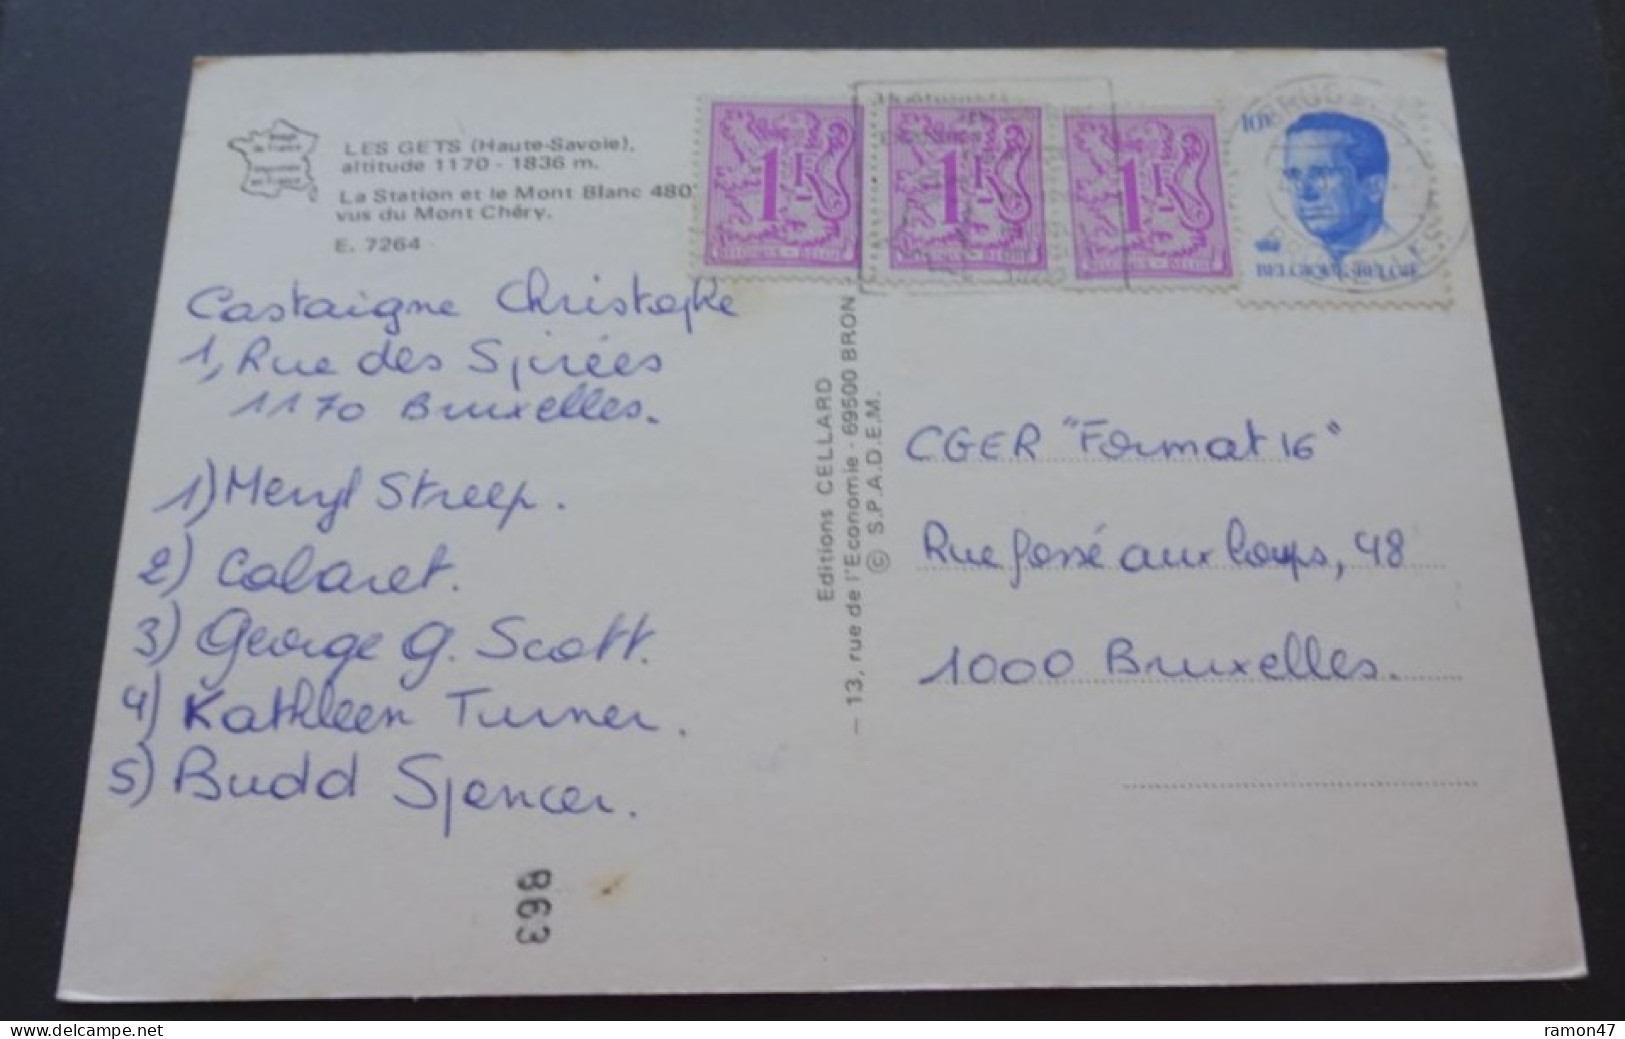 LES GETS (Haute-Savoie),
altitude 1170 - 1836 m.
La Station et le Mont Blanc 480
vus du Mont Chéry.
E. 7264
Castaigne Christophe
1, Rue des Spirées
1170 Bruxelles.
1) Meryl Streep.
2) Cabaret.
3) George G. Scott.
4) Kathleen Turner.
5) Budd Spencer.
863
Editions CELLARD
— 13, rue de l'Economie - 69500 BRON
© S.P.A.D.E.M.
1F
BELGIQUE - BELGIË
1F
BELGIQUE - BELGIË
1F
BELGIQUE - BELGIË
10F
BELGIQUE-BELGIË
CGER "Format 16"
Rue fossé aux loups, 48
1000 Bruxelles.
www.delcampe.net
ramon47